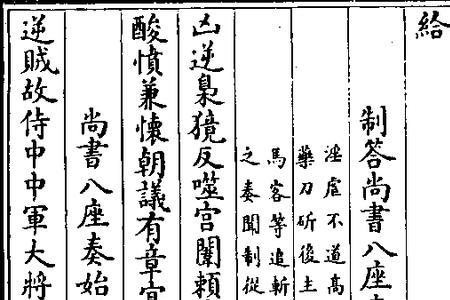 給
制答尚書八座
淫虐不道高
藥刀斫後主
馬客等追斬
之奏聞制從
凶逆梟獍反噬宫闈賴
酸憤兼懷朝議有章宜
尚書八座奏始
逆賊故侍中中軍大將